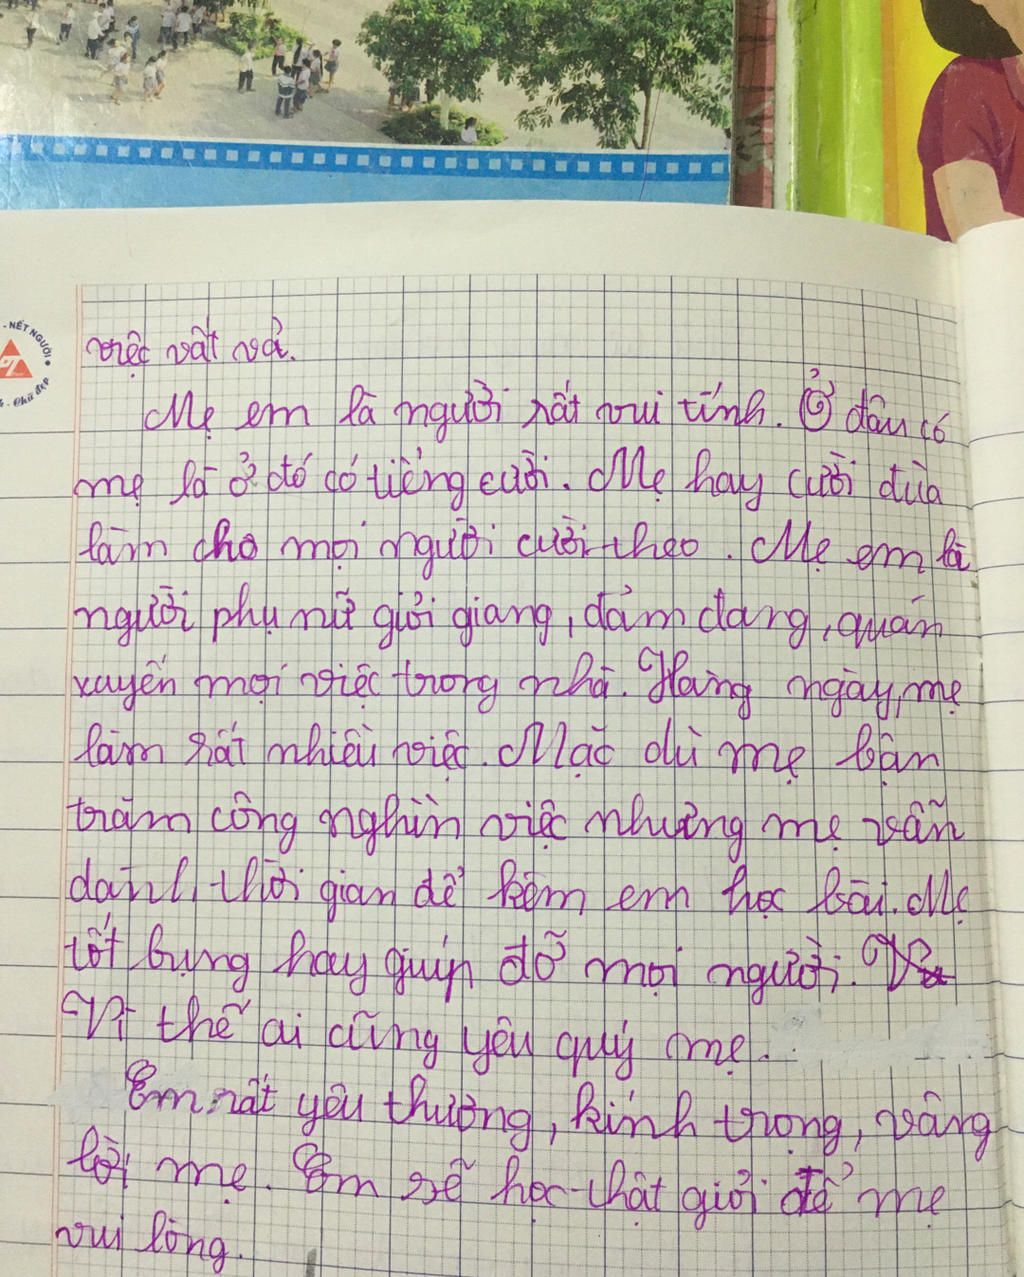 - NẾT NGƯỜI
việc vất vả.
Mẹ em là người rất vui tính. Ở đâu có
mẹ là ở đó có tiếng cười. Mẹ hay cười đùa
làm cho mọi người cười theo. Mẹ em là
người phụ nữ giỏi giang, đảm đang, quán
xuyến mọi việc trong nhà. Hàng ngày, mẹ
làm rất nhiều việc. Mặc dù mẹ bận
trăm công nghìn việc nhưng mẹ vẫn
dành thời gian để kèm em học bài. Mẹ
tốt bụng hay giúp đỡ mọi người.
Vì thế ai cũng yêu quý mẹ.
Em rất yêu thương, kính trọng, vâng
lời mẹ. Em sẽ học thật giỏi để mẹ
vui lòng.